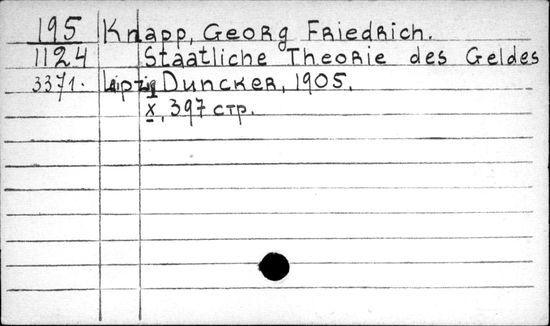 195 Knapp, Georg Friedrich.
1124 Staatliche Theorie des Geldes
3371. Leipzig Duncker, 1905.
X, 397 стр.